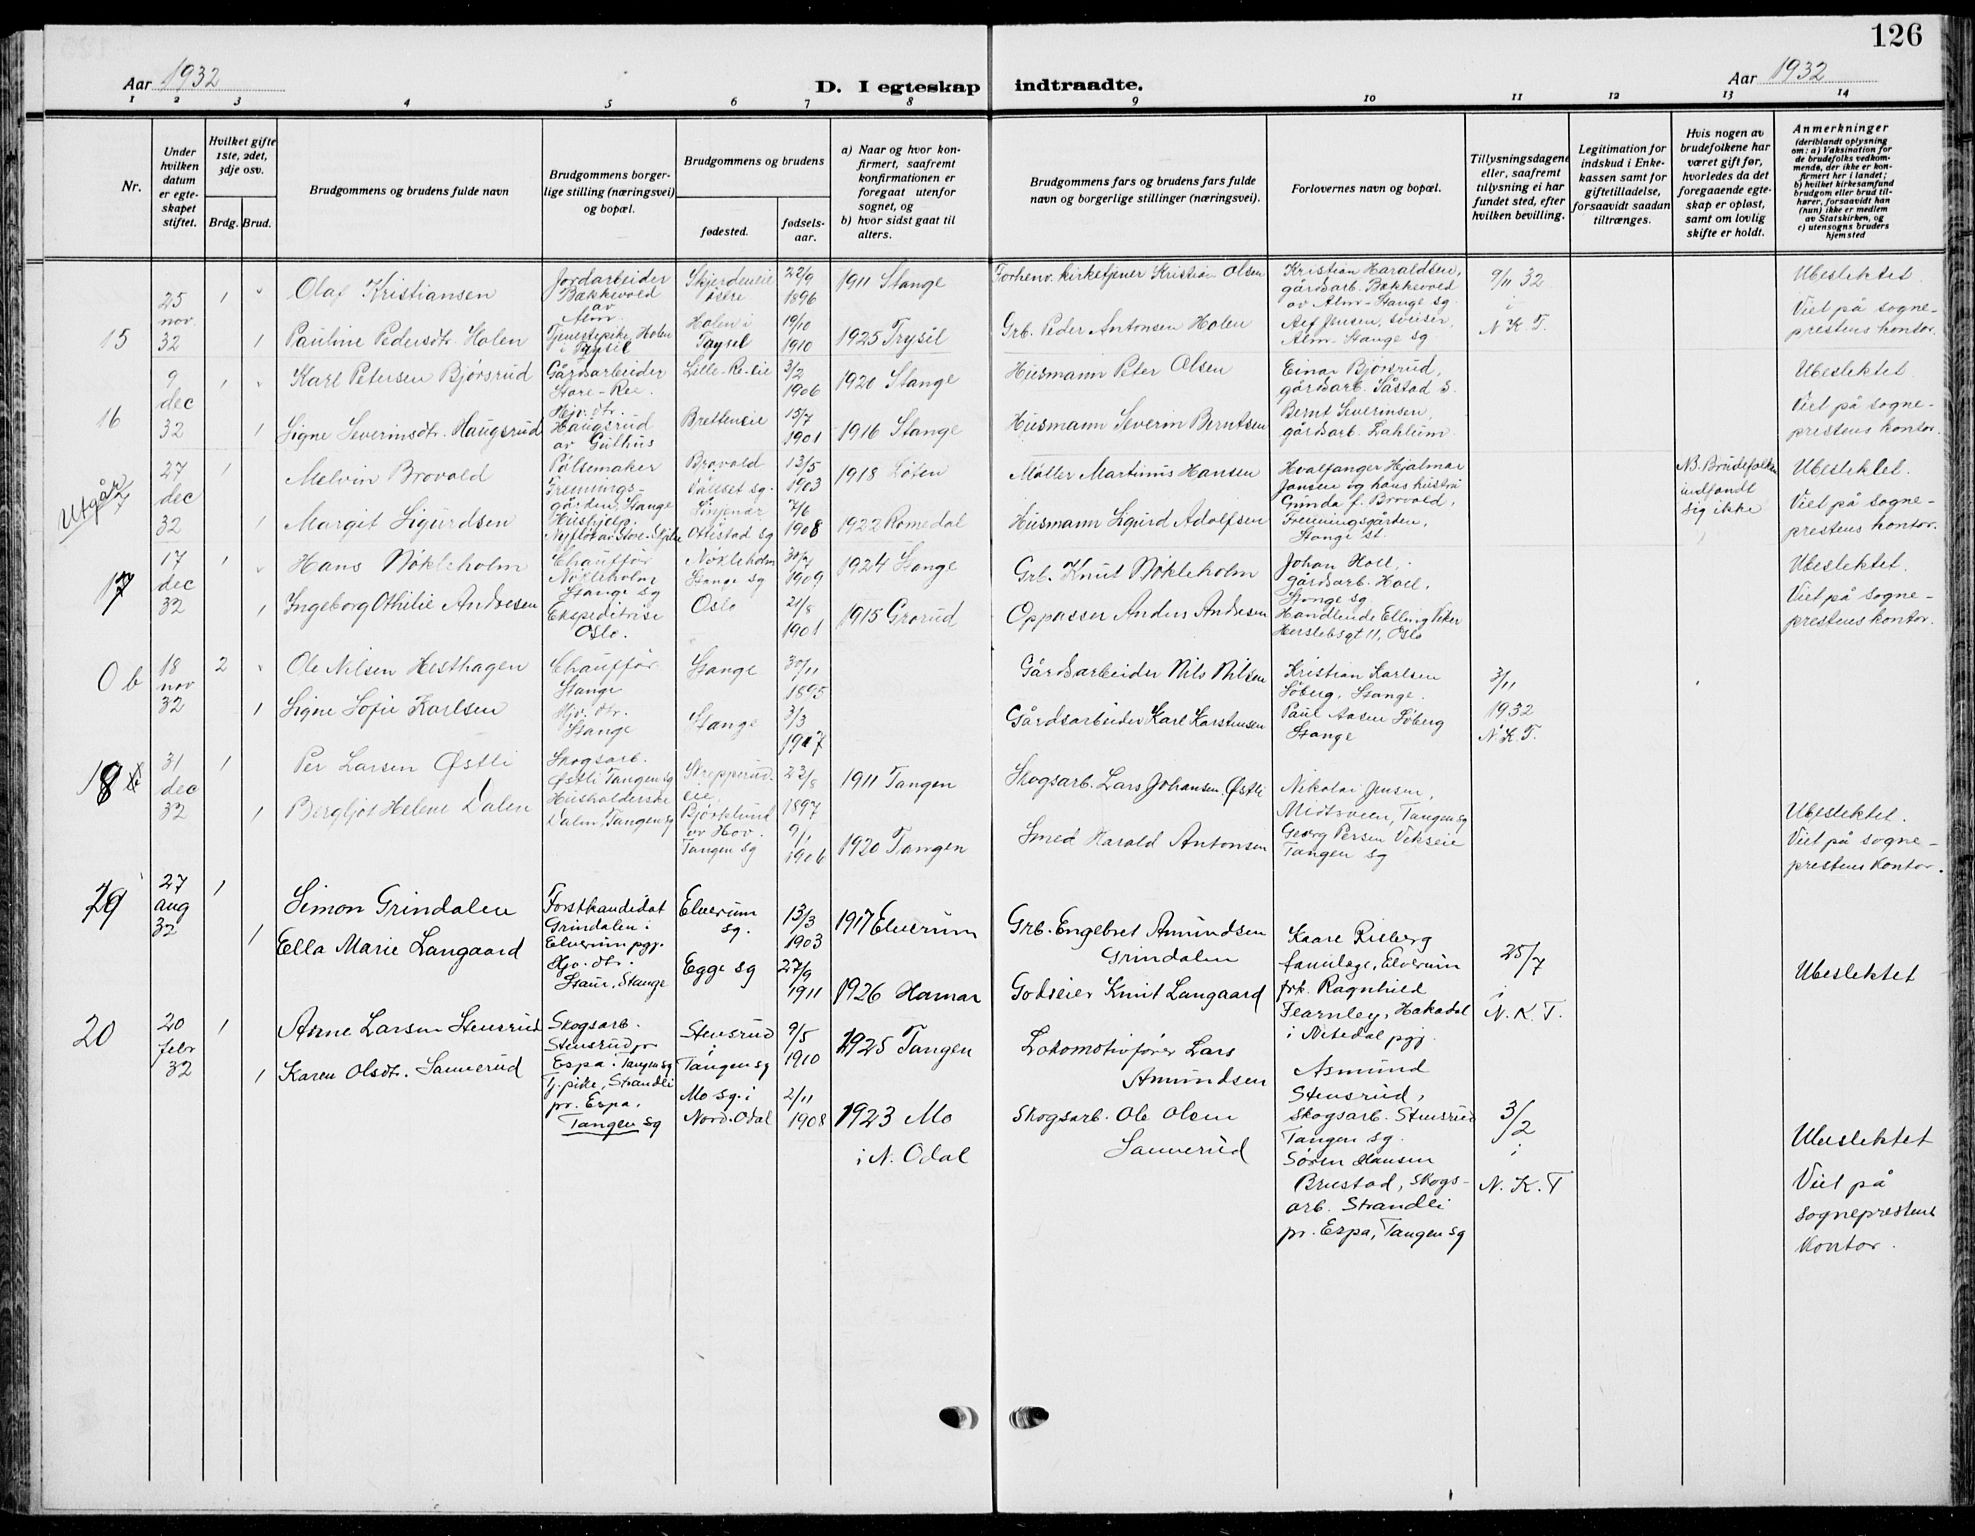 126
Aar 1932
D. I egteskap indtraadte.
Aar 1932
1 2 3 4 5 6 7 8 9 10 11 12 13 14
Nr.
Under hvilken datum er egteskapet stiftet.
Hvilket gifte 1ste, 2det, 3dje osv.
Brdg. Brud.
Brudgommens og brudens fulde navn
Brudgommens borgerlige stilling (næringsvei) og bopæl.
Brudgommens og brudens
fødested.
fødselsaar.
a) Naar og hvor konfirmert, saafremt konfirmationen er foregaat utenfor sognet, og
b) hvor sidst gaat til alters.
Brudgommens fars og brudens fars fulde navn og borgerlige stillinger (næringsvei).
Forlovernes navn og bopæl.
Tillysningsdagene eller, saafremt tillysning ei har fundet sted, efter hvilken bevilling.
Legitimation for indskud i Enkekassen samt for giftetilladelse, forsaavidt saadan tiltrænges.
Hvis nogen av brudefolkene har været gift før, hvorledes da det foregaaende egteskap er opløst, samt om lovlig skifte er holdt.
Anmerkninger (deriblandt oplysning om: a) Vaksination for de brudefolks vedkommende, der ikke er konfirmert her i landet; b) hvilket kirkesamfund brudgom eller brud tilhører, forsaavidt han (hun) ikke er medlem av Statskirken, og c) utensogns bruders hjemsted
15
25 nov 32
1
Olaf Kristiansen
Jordarbeider Bækkevold av Alm.
22/9 1896
1911 Stange
Forhenv. kirketjener Kristian Olsen
Kristian Haraldsen, gårdsarb. Bækkevold av Alm - Stange sg.
9/11 32 i N. K. T.
Ubeslektet
1
Pauline Pedersdtr. Holen
Tjenestepike, Holen i Trysil
Holen i Trysil
19/10 1910
1925 Trysil
Grb. Peder Antonsen Holen
Alf Jensen, sveiser, Alm - Stange sg
Viet på sogneprestens kontor.
16
9 dec 32
1
Karl Petersen Bjørsrud
Gårdsarbeider Store-Ree.
Lille-Re-eie
3/2 1906
1920 Stange
Husmann Peter Olsen
Einar Bjørsrud, gårdsarb. Såstad S.
Ubeslektet
1
Signe Severinsdtr. Haugsrud
Hjv. dtr. Haugsrud av Gulhus
Bretteneie
15/7 1901
1916 Stange
Husmann Severin Berntsen
Bernt Severinsen, gårdsarb. Dahlum
Viet på sogneprestens kontor.
Utgår
27 dec 32
1
Melvin Brovold
Pølsemaker Frenningsgården, Stange
Brovold Vallset sg.
13/5 1903
1918 Løten
Møller Martinus Hansen
Hvalfanger Hjalmar Jansen og hans hustru Gunda f. Brovold, Frenningsgården, Stange st.
NB. Brudefolkene indfandt sig ikke
Ubeslektet.
1
Margit Sigurdsen
Ottestad sg
7/6 1908
1922 Romedal
Husmann Sigurd Adolfsen
Viet på sogneprestens kontor.
17
17 dec 32
1
Hans Nökleholm
Chauffør Nökleholm Stange sg
Nökleholm Stange sg
1909
1924 Stange
Grb. Knut Nökleholm
Johan Hoel, gårdsarb. Hoel, Stange sg
Ubeslektet.
1
Ingeborg Othilie Andresen
Ekspeditrise Oslo.
Oslo
21/8 1901
1915 Grorud
Oppasser Anders Andresen
Handlende Elling Viker Herslebsgt 11, Oslo
Viet på sogneprestens kontor.
0 b
18 nov 32
2
Ole Nilsen Hesthagen
Chauffør Stange
Stange
30/11 1895
Gårdsarbeider Nils Nilsen
Kristian Karlsen Söberg, Stange.
3/11 1932 N. K. T.
1
Signe Sofie Karlsen
Hjv. dtr. Stange
Stange
3/3 1907
Gårdsarbeider Karl Karstensen
Paul Aasen Söberg Stange
18
31 dec 32
1
Per Larsen Østli
Skogsarb. Østli Tangen sg
Strepperudeie.
23/8 1897
1911 Tangen
Skogsarb. Lars Johansen Østli
Nikolai Jensen, Midtveien, Tangen sg
1
Bergljot Helene Dalen
Husholderske Dalen, Tangen sg
Bjørkelund av Hov. Tangen sg
9/1 1906
1920 Tangen
Smed Harald Antonsen
Georg Persen Vekseie Tangen sg
Ubeslektet.
Viet på sogneprestens kontor.
19
27 aug 32
1
Simon Grindalen
Forstkandidat Grindalen i Elverum pgj.
Elverum sg.
13/3 1903
1917 Elverum
Grb. Engebret Amundsen Grindalen
Kaare Risberg familage, Elverum
25/7 i N. K. T.
1
Ella Marie Langaard
Hjv. dtr. Staur, Stange
Egge sg
27/9 1911
1926 Hamar
Godseier Knut Langaard
frk. Ragnhild Fearnley, Hakadal i Nitedal pgj.
Ubeslektet
20
20 febr 32
1
Arne Larsen Stensrud
Skogsarb. Stensrud pr Espa i Tangen sg
Stensrud i Tangen sg
9/5 1910
1925 Tangen
Lokomotivfører Lars Amundsen
Asmund Stensrud, skogsarb. Stensrud Tangen sg.
3/2 i N. K. T
1
Karen Olsdtr. Sannerud
Tj. pike, Strandli pr. Espa, Tangen sg
Mo sg. i Nord-Odal
2/11 1908
1923 Mo i N. Odal
Skogsarb. Ole Olsen Sannerud
Søren Hansen Brustad, skogsarb. Strandli pr. Espa, Tangen sg
Ubeslektet
Viet på sogneprestens kontor.